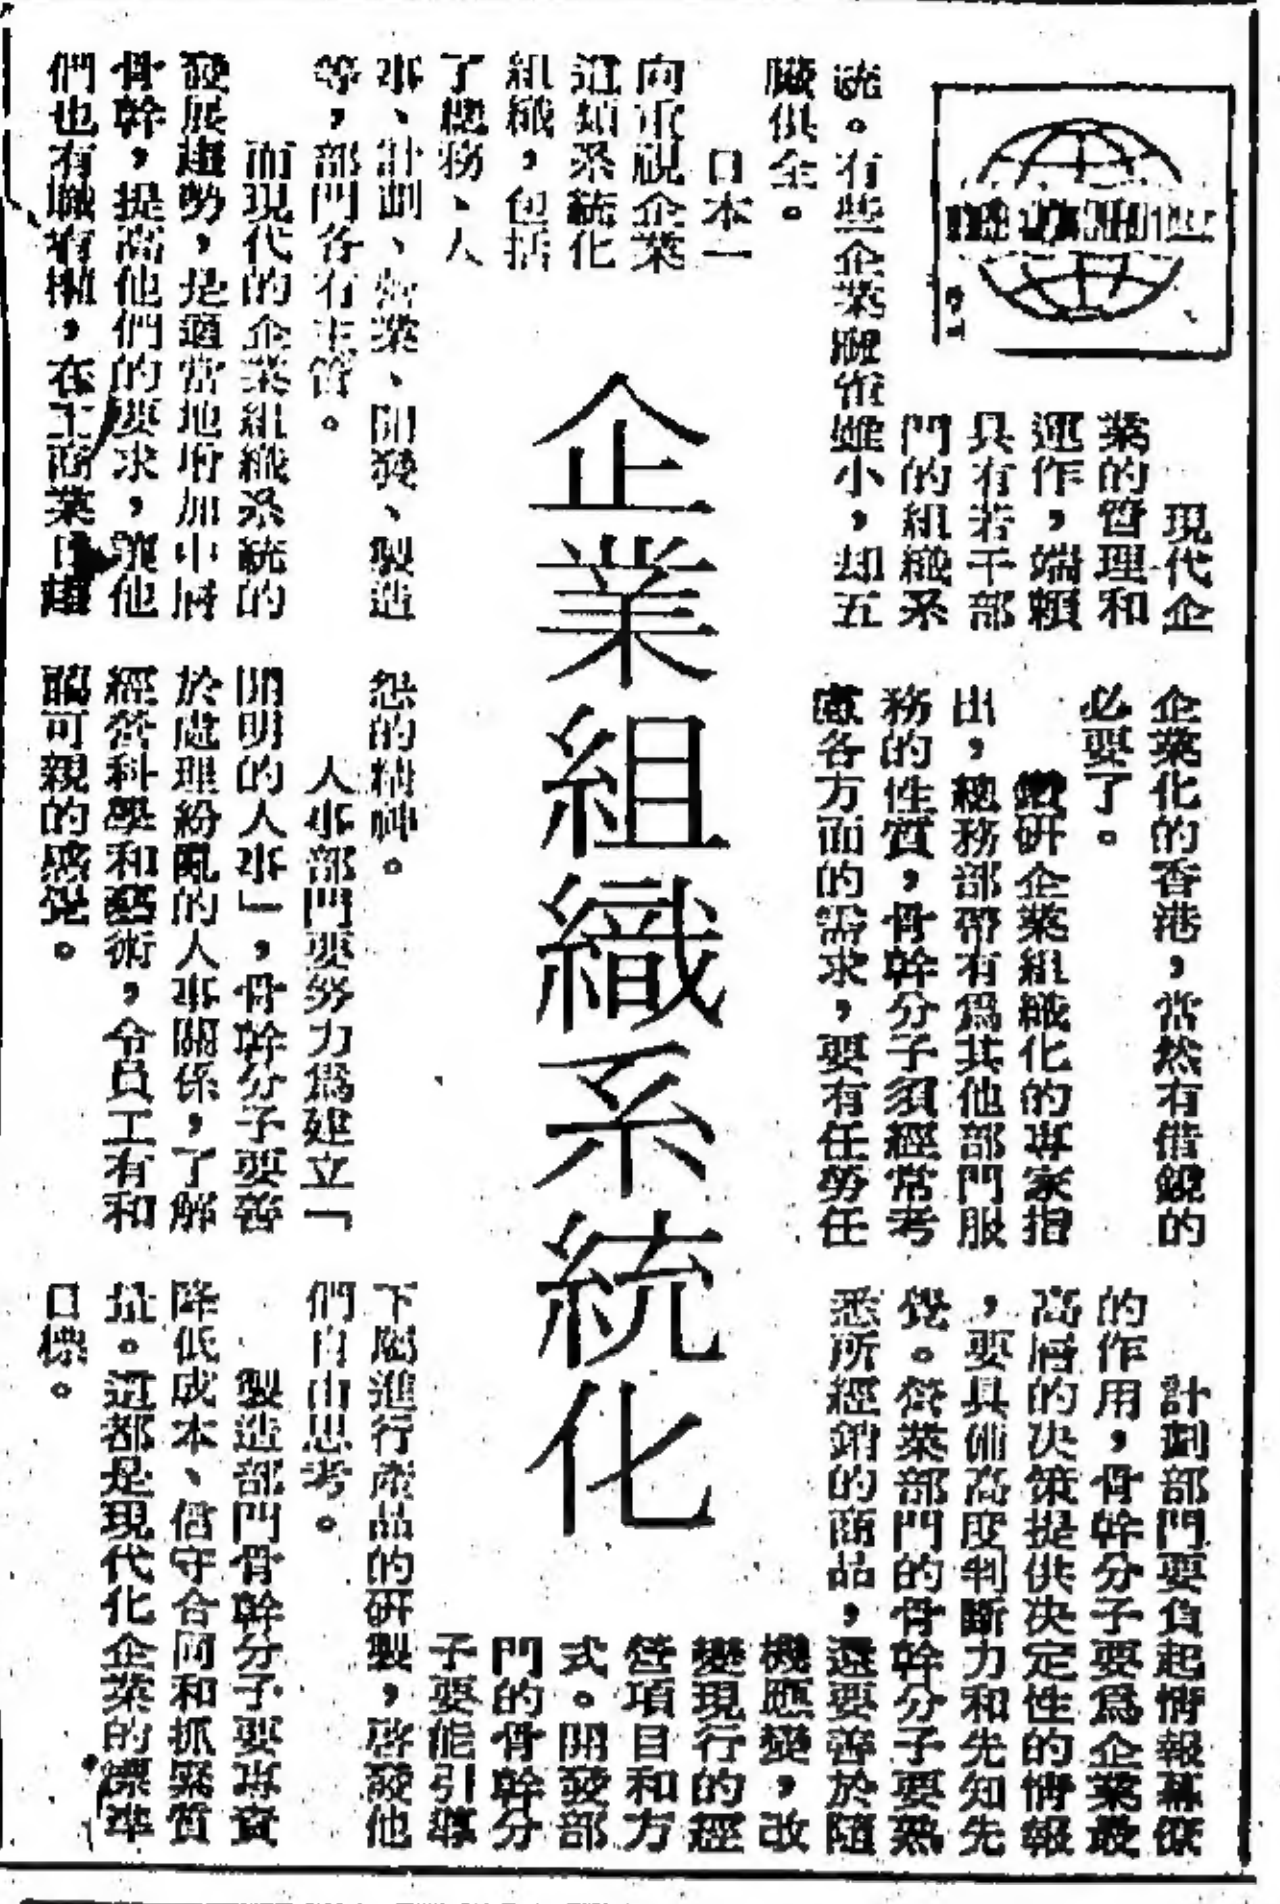 企業組織系統化
現代企
業的管理和
運作，端賴
具有若干部
門的組織系
統。有些企業雖小，却五
臟俱全。
日本一
向重視企業
這類系統化
組織，包括
了總務、人
事、計劃、營業、開發、製造
等，部門各有主管。
而現代的企業組織系統的
發展趨勢，是適當地增加中層
骨幹，提高他們的要求，讓他
們也有職有權，在工商業日趨
企業化的香港，當然有借鏡的
必要了。
鑽研企業組織化的專家指
出，總務部帶有爲其他部門服
務的性質，骨幹分子須經常考
慮各方面的需求，要有任勞任
怨的精神。
人事部門要努力爲建立「
開明的人事」，骨幹分子要善
於處理紛亂的人事關係，了解
經營科學和藝術，令員工有和
藹可親的感覺。
計劃部門要負起情報幕僚
的作用，骨幹分子要爲企業最
高層的决策提供决定性的情報
，要具備高度判斷力和先知先
覺。營業部門的骨幹分子要熟
悉所經銷的商品，還要善於隨
機應變，改
變現行的經
營項目和方
式。開發部
門的骨幹分
子要能引導
下屬進行產品的研製，啓發他
們自由思考。
製造部門骨幹分子要專責
降低成本、信守合同和抓緊質
量。這都是現代化企業的標準
目標。